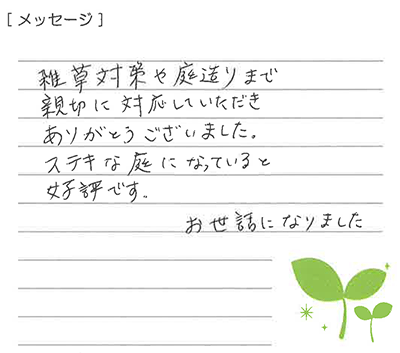 [メッセージ]
雑草対策や庭造りまで
親切に対応していただき
ありがとうございました。
ステキな庭になっていると
好評です。
お世話になりました